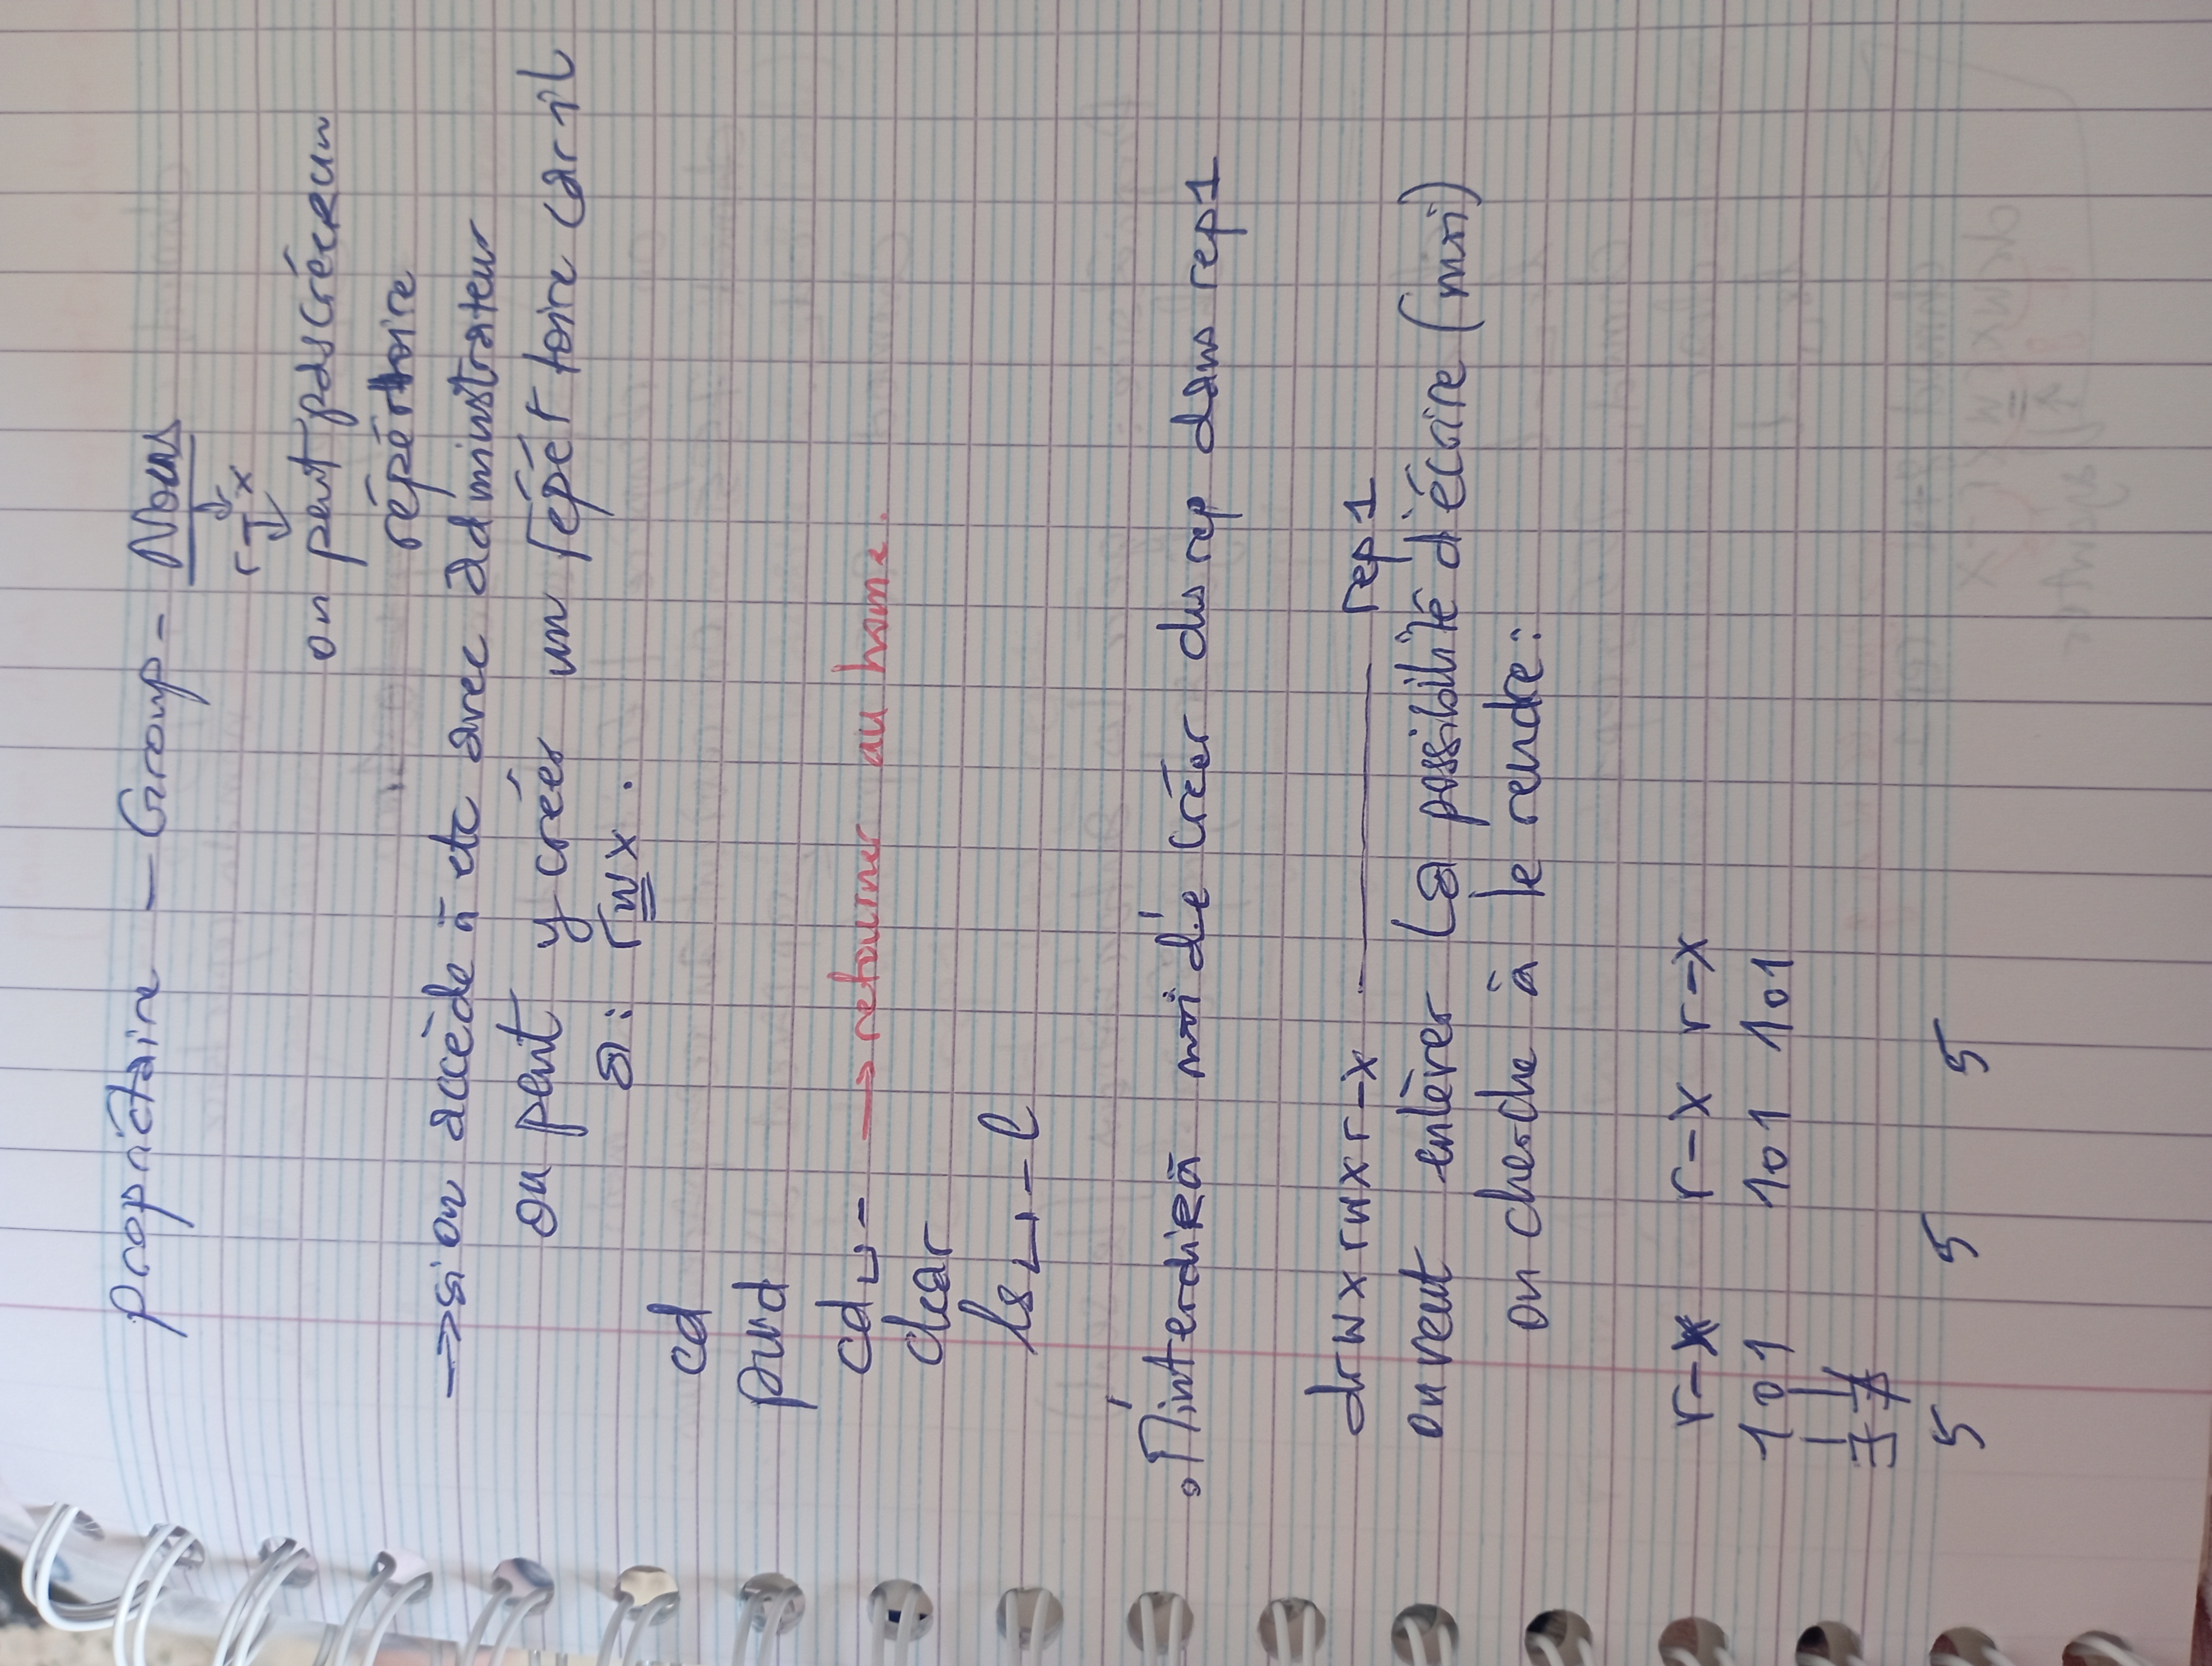 propriétaire - Group - Nous
r-x
on peut pas créer un
répértoire
→ si on accède à etc avec adminstrateur
on peut y créer un répértoire car il
a : rwx .
cd
pwd
cd ⌴ - → retourner au home.
clear
ls ⌴ -l
M'interdire à moi de créer des rep dans rep1
drwxrwxr-x ——— rep1
on veut enlèver la possibilité d'écrire (moi)
on cherche à le rendre :
r-x r-x r-x
101 101 101
∃ ∄
5 5 5